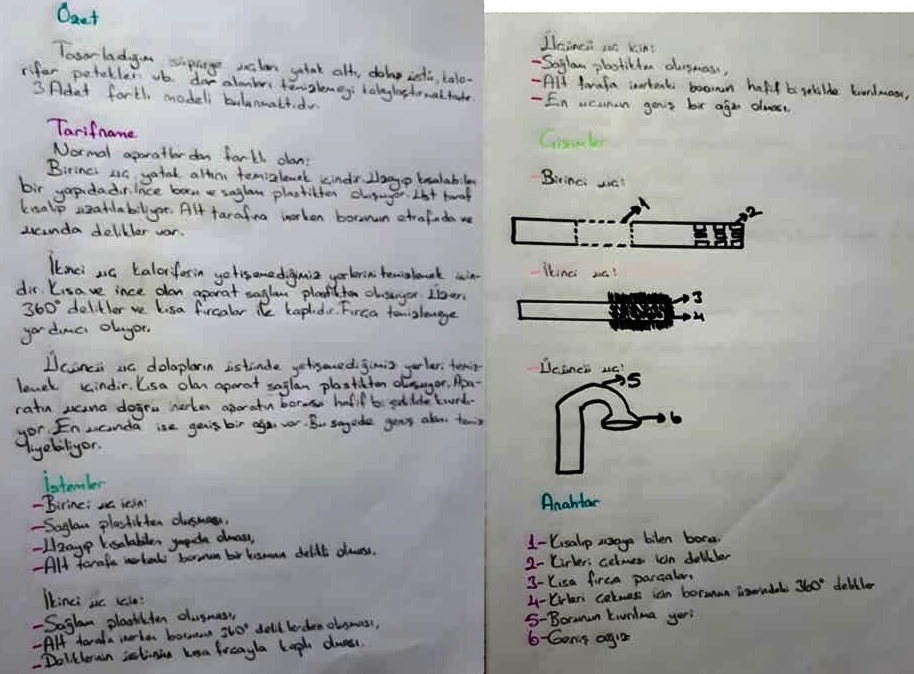 Özet
Tasarladığım süpürge uçları yatak altı, dolap üstü, kalo-
rifer petekleri vb. dar alanları temizlemeyi kolaylaştırmaktadır.
3 Adet farklı modeli bulunmaktadır.
Tarifname
Normal aparatlardan farklı olan:
Birinci uç yatak altını temizlemek içindir. Uzayıp kısalabilen
bir yapıdadır. İnce boru ve sağlam plastikten oluşuyor. Üst taraf
kısalıp uzatılabiliyor. Alt tarafına inerken borunun etrafında ve
ucunda delikler var.
İkinci uç kaloriferin yetişemediğimiz yerlerini temizlemek için-
dir. Kısa ve ince olan aparat sağlam plastikten oluşuyor. Üzeri
360° delikler ve kısa fırçalar ile kaplıdır. Fırça temizlemeye
yardımcı oluyor.
Üçüncü uç dolapların üstünde yetişemediğimiz yerleri temiz-
lemek içindir. Kısa olan aparat sağlam plastikten oluşuyor. Apa-
ratın ucuna doğru inerken aparatın borusu hafif bi şekilde kıvrılı-
yor. En ucunda ise geniş bir ağzı var. Bu sayede geniş alanı temiz
liyebiliyor.
İstemler
- Birinci uç için:
- Sağlam plastikten oluşması,
- Uzayıp kısalabilen yapıda olması,
- Alt tarafa inerkenki borunun bir kısmının delikli olması.
İkinci uç için:
- Sağlam plastikten oluşması,
- Alt tarafa inerken borunun 360° deliklerden oluşması,
- Deliklerinin üstünün kısa fırçayla kaplı olması.
Üçüncü uç için:
- Sağlam plastikten oluşması,
- Alt tarafa inerkenki borunun hafif bi şekilde kıvrılması,
- En ucunun geniş bir ağzı olması.
Çizimler
- Birinci uç:
1
2
- İkinci uç:
3
4
- Üçüncü uç:
5
6
Anahtar
1- Kısalıp uzaya bilen boru.
2- Kirleri çekmesi için delikler
3- Kısa fırça parçaları
4- Kirleri çekmesi için borunun üzerindeki 360° delikler
5- Borunun kıvrılma yeri
6- Geniş ağız